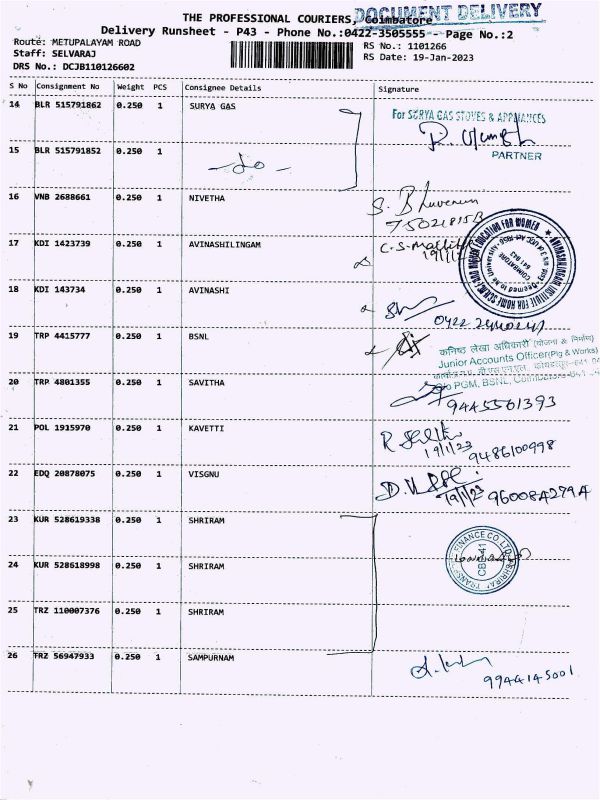 DOCUMENT DELIVERY
THE PROFESSIONAL COURIERS, Coimbatore
Delivery Runsheet - P43 - Phone No.:0422-3505555 - Page No.:2
Route: METUPALAYAM ROAD RS No.: 1101266
Staff: SELVARAJ RS Date: 19-Jan-2023
DRS No.: DCJB110126602
S No Consignment No Weight PCS Consignee Details Signature
14 BLR 515791862 0.250 1 SURYA GAS
For SURYA GAS STOVES & APPLIANCES
PARTNER
15 BLR 515791852 0.250 1 - do -
16 VNB 2688661 0.250 1 NIVETHA
17 KDI 1423739 0.250 1 AVINASHILINGAM
18 KDI 143734 0.250 1 AVINASHI
19 TRP 4415777 0.250 1 BSNL
कनिष्ठ लेखा अधिकारी (योजना & निर्माण)
Junior Accounts Officer(Plg & Works)
PGM, BSNL, Coimbatore
20 TRP 4801355 0.250 1 SAVITHA 9445561393
21 POL 1915970 0.250 1 KAVETTI
19/1/23 9486100998
22 EDQ 20878075 0.250 1 VISGNU
19/1/23
23 KUR 528619338 0.250 1 SHRIRAM
24 KUR 528618998 0.250 1 SHRIRAM
25 TRZ 110007376 0.250 1 SHRIRAM
26 TRZ 56947933 0.250 1 SAMPURNAM
9944145001